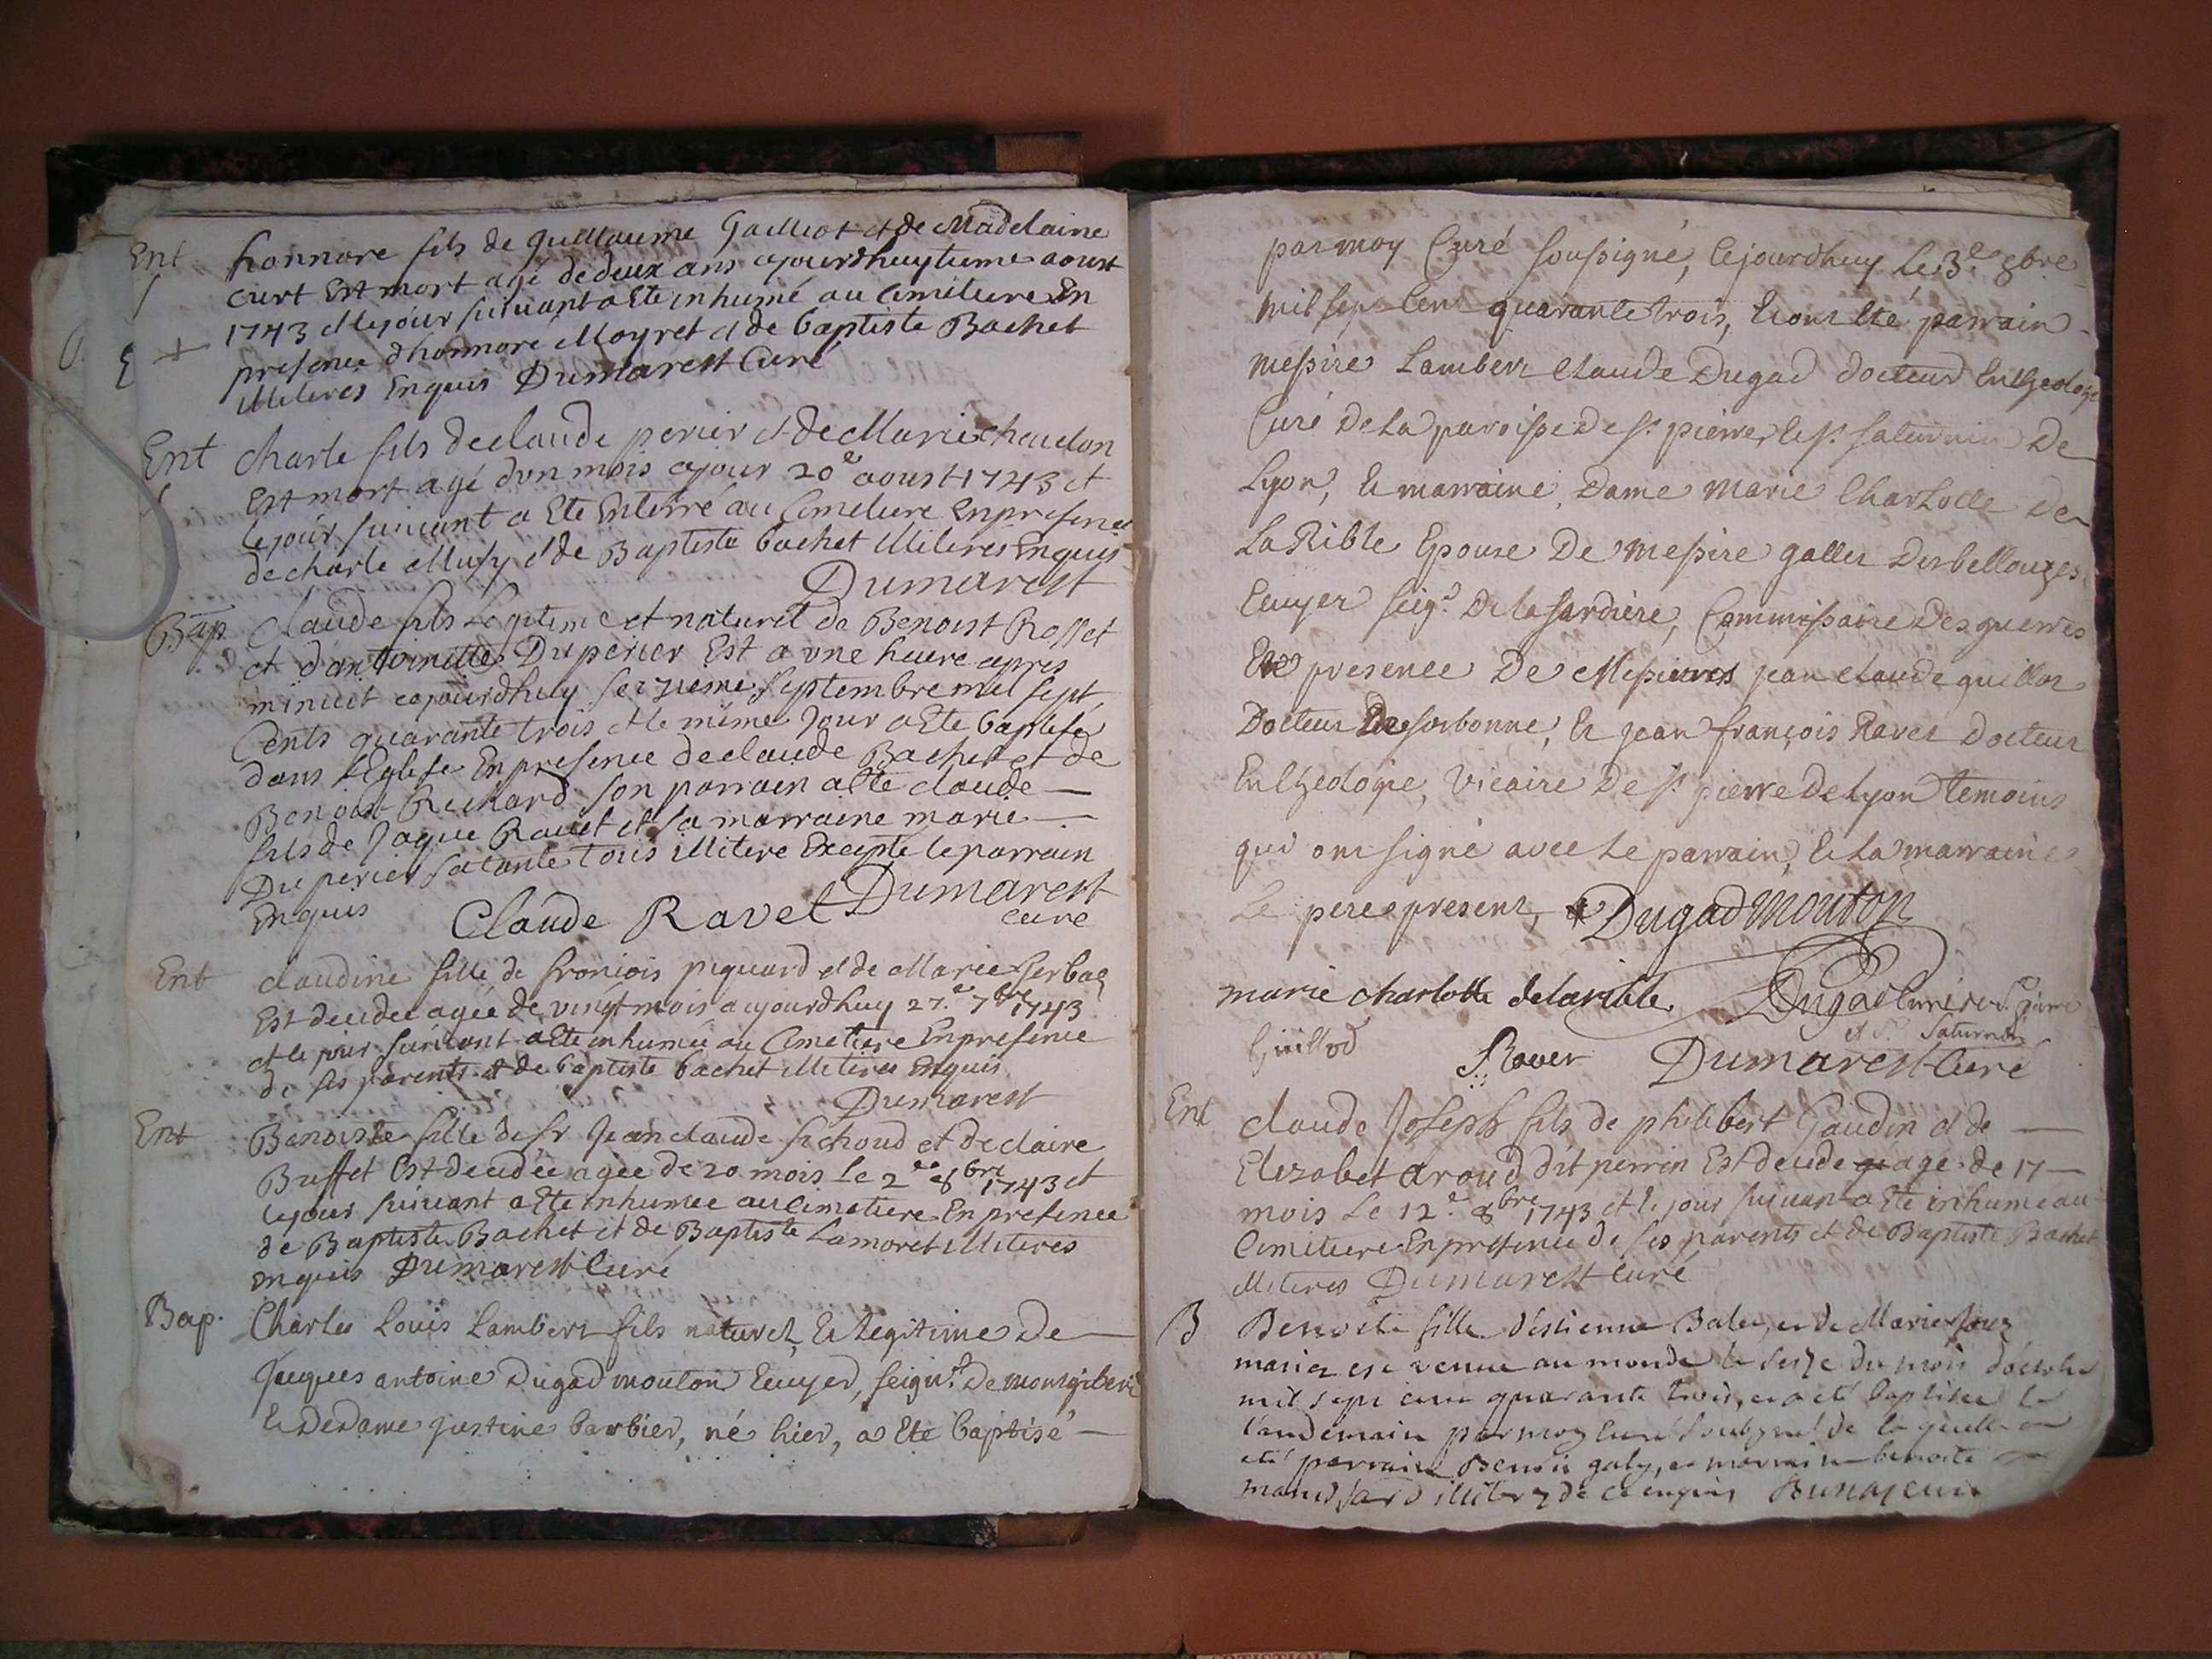 Ent honnore fils de guillaume Gailliot et de Madelaine
curt Est mort agé de deux ans ajourdhuytieme aoust
1743 et le jour suivant a Ete inhumé au Cimetiere En
presence dhonnore Moyret et de baptiste Bachet
illiteres Enquis Dumarest Curé
Ent charle fils de claude perier et de Marie chaudon
Est mort agé dun mois ajour 20e aoust 1743 et
le jour suivant a Ete Enterré au Cimetiere En presence
de charle Musy et de Baptiste bachet illiteres Enquis
Dumarest
Bap Claude fils Legitime et naturel de Benoist Rosset
et dantoinette Duperier Est a une heure apres
minuit cajourdhuy seizieme septembre mil sept
Cents quarante trois et le même Jour a Ete baptisé
dans l'Eglise En presence de claude Bachet et de
Benoist Richard son parrain a Ete claude
fils de Jaque Ravet et sa marraine marie
Duperier sa tante tous illitere Excepte le parrain
Enquis Claude Ravel Dumarest
curé
Ent claudine fille de francois piquard et de Marie
Est decedee agée de vingt mois aujourdhuy 27e 7bre 1743
et le jour suivant a Ete inhumée au Cimetiere En presence
de ses parents et de baptiste bachet illiteres Enquis
Dumarest
Ent Benoiste fille de sr Jean claude sichoud et de claire
Buffet Est decedée agee de 20 mois le 2e 8bre 1743 et
le jour suivant a Ete inhumee au cimetiere En presence
de Baptiste Bachet et de Baptiste Lamoret illiteres
enquis Dumarest Curé
Bap. Charles Louis Lambert fils naturel, et legitime de
Jacques antoine Dugad mouton Ecuyer, seignr. De montgibert
et De Dame justine barbier, né hier, a Eté baptisé
par moy Curé soussigné, cejourdhuy Le 3e 8bre
mil sept cent quarante trois, Et ont Eté parrain
messire Lambert Claude Dugad docteur En theologie
Curé De La paroisse De st. pierre, et st. saturnin De
Lyon, et marraine, Dame Marie Charlotte De
La Rible Epouse De messire galler Desbellouzes
Ecuyer seigr. De la sardiere, Commissaire Des guerres
En presence De Messieurs jean claude guillot
Docteur De sorbonne, et jean françois Ravet Docteur
En theologie, Vicaire De st. pierre De Lyon temoins
qui ont signé avec Le parrain, et La marraine
Le pere present, Dugad Mouton
marie charlotte delarible Dugad curé de St. pierre
et St. Saturnin
Guillod Ravet Dumarest Curé
Ent claude Joseph fils de philibert Gaudin et de
Elizabet araud dit perrin Est decede age de 17
mois le 12e 8bre 1743 et le jour suivant a Ete inhume au
Cimetiere En presence de ses parents et de Baptiste Bachet
illiteres Dumarest curé
B Benoite fille d'estienne Balet, et de Marie
maries est venue au monde le seize du mois d'octobre
mil sept cent quarante trois, et a eté baptisee le
landemain par moy curé soubsigné de laquelle a
eté parrain Benoit galy, et marraine benoite
illiteres de ce enquis curé